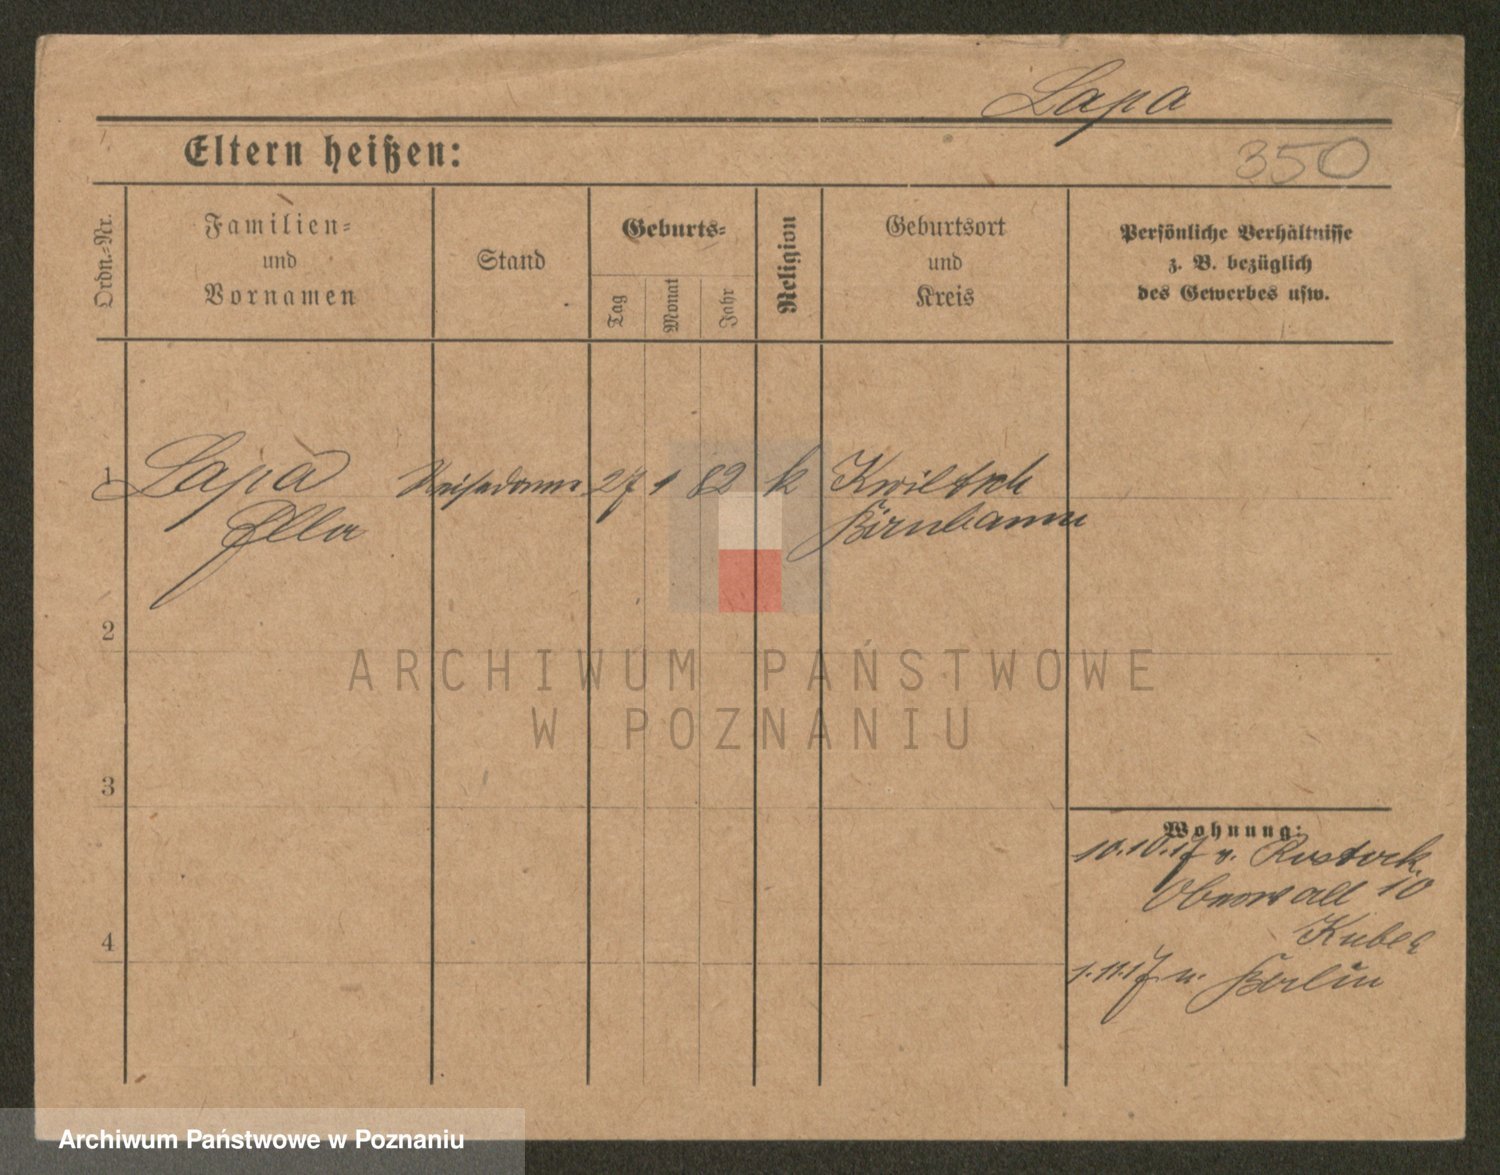 Lapa
Eltern heißen:
350
Ordn.-Nr.
Familien-
und
Vornamen
Stand
Geburts-
Tag
Monat
Jahr
Religion
Geburtsort
und
Kreis
Persönliche Verhältnisse
z. B. bezüglich
des Gewerbes usw.
1 Lapa 27 1 82 k Kwiltsch
Ella Birnbaum
2
ARCHIWUM PAŃSTWOWE
W POZNANIU
3
Wohnung:
10.10.17 v. Rostock
10
4
Kubea
1.11.17 n. Berlin
Archiwum Państwowe w Poznaniu